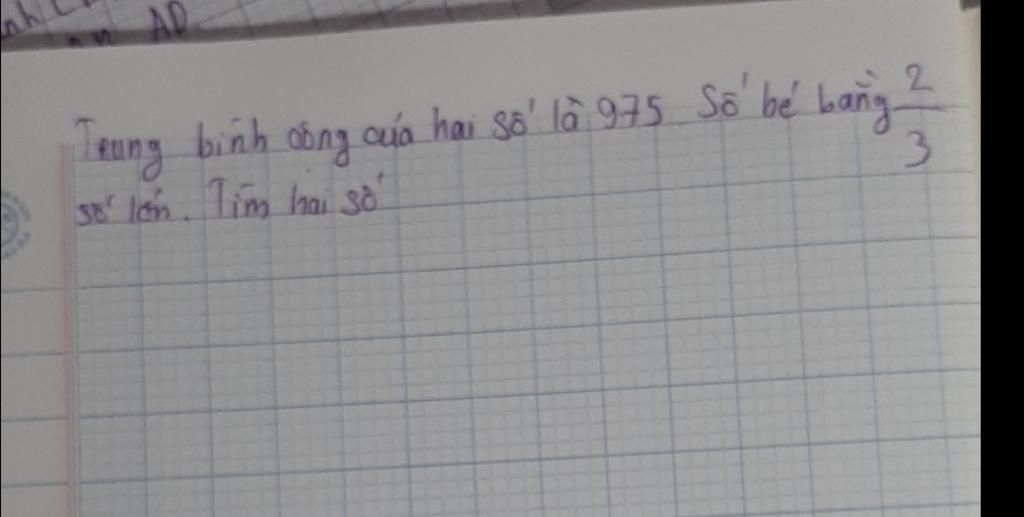 AD
Trung bình cộng của hai số là 975 Số bé bằng 2/3
số lớn. Tìm hai số